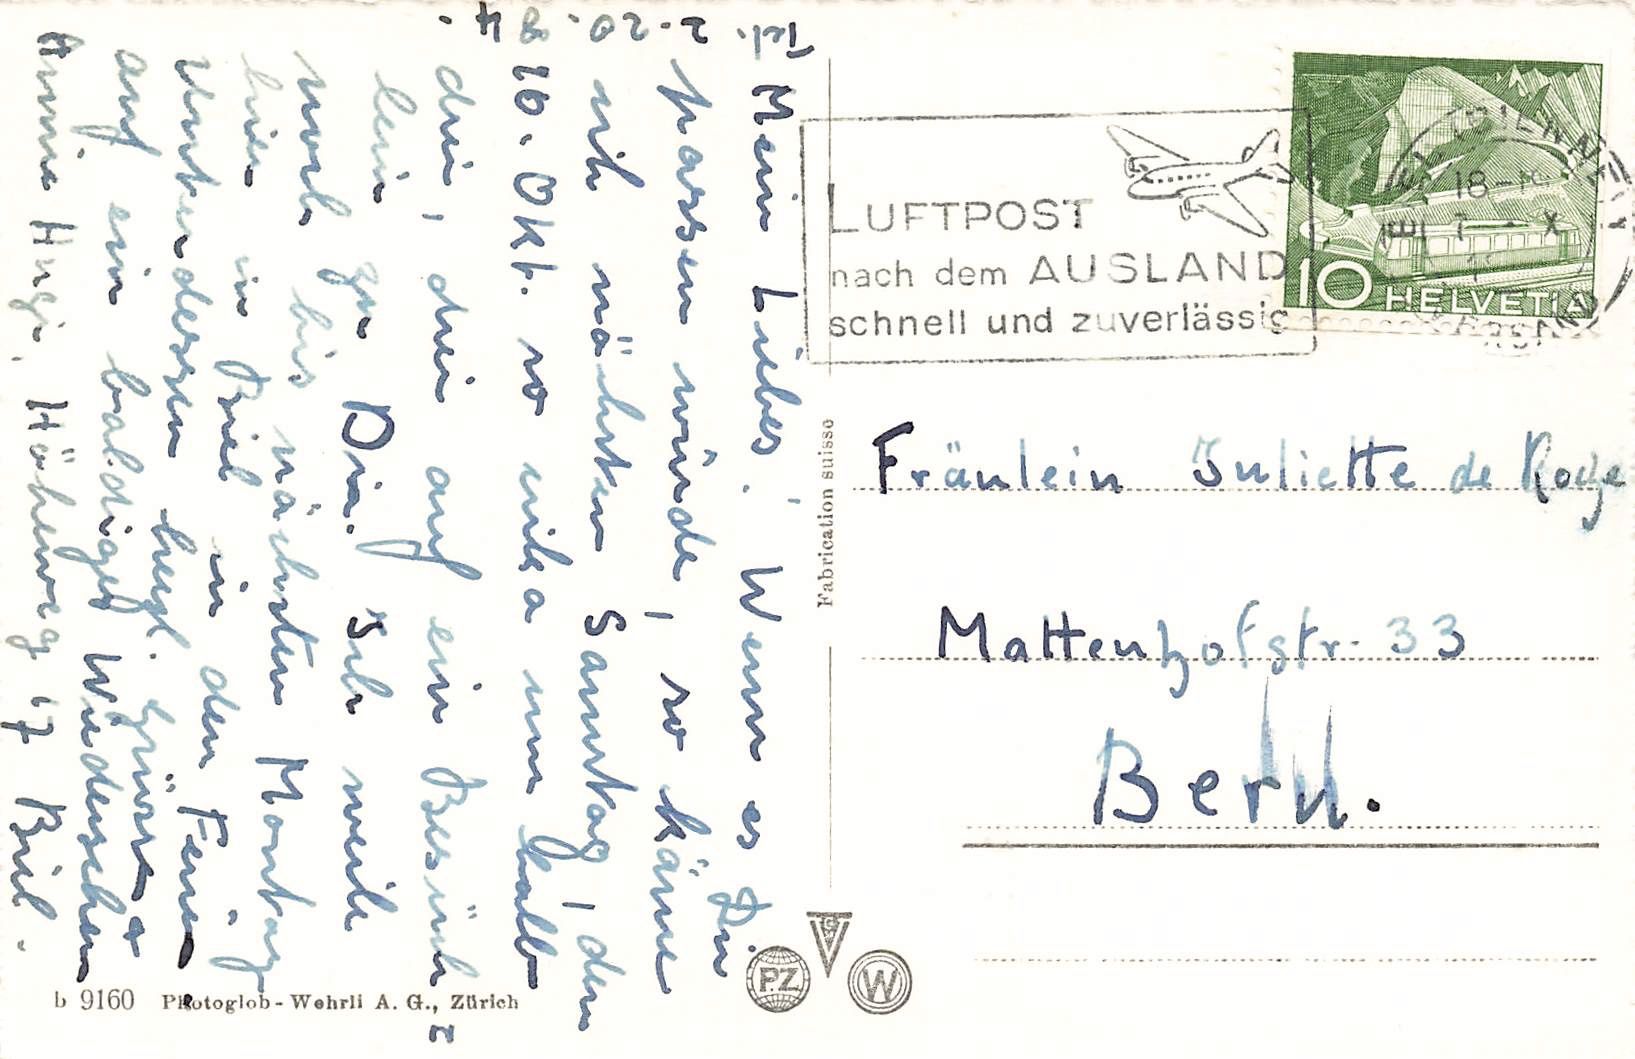 Tel. 2-20-84.
Mein Liebes! Wenn es Dir
passen würde, so käme
ich nächsten Samstag, den
16. Okt. so zirka um halb
drei, drei auf ein Besüch-
lein zu Dir. Ich weile
noch bis nächsten Montag
hier in Biel in den Ferien.
Unterdessen herzl. Grüsse &
auf ein baldiges Wiedersehen
Annie Hugi, Höheweg 17 Biel.
b 9160 Photoglob-Wehrli A. G., Zürich
Fabrication suisse
P.Z
G
W
LUFTPOST
nach dem AUSLAND
schnell und zuverlässig
BIEL
BIENNE
18-
7 - X
VERSAND
10 HELVETIA
Fräulein Juliette de
Mattenhofstr. 33
Bern.